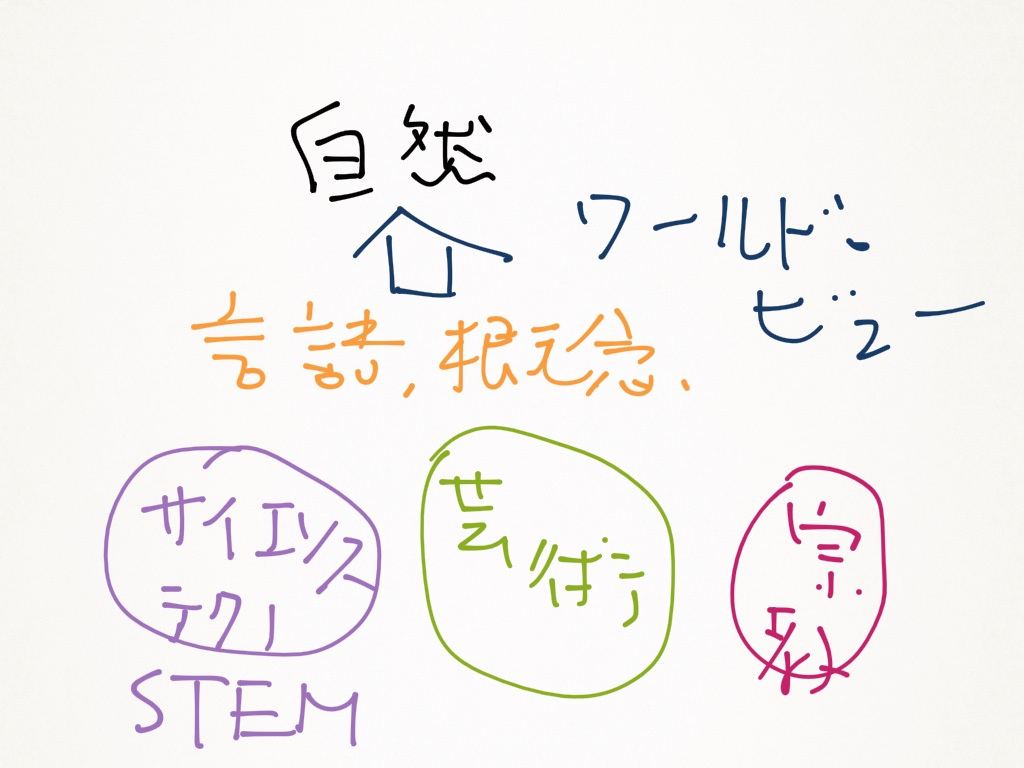 自然
ワールド
ビュー
言語,根元念、
サイエンス
テクノ
STEM
芸術
宗教